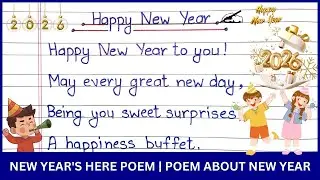 2026
Happy New Year
Happy New Year
Happy New Year to you!
2026
May every great new day,
Being you sweet surprises.
A happiness buffet.
NEW YEAR'S HERE POEM | POEM ABOUT NEW YEAR